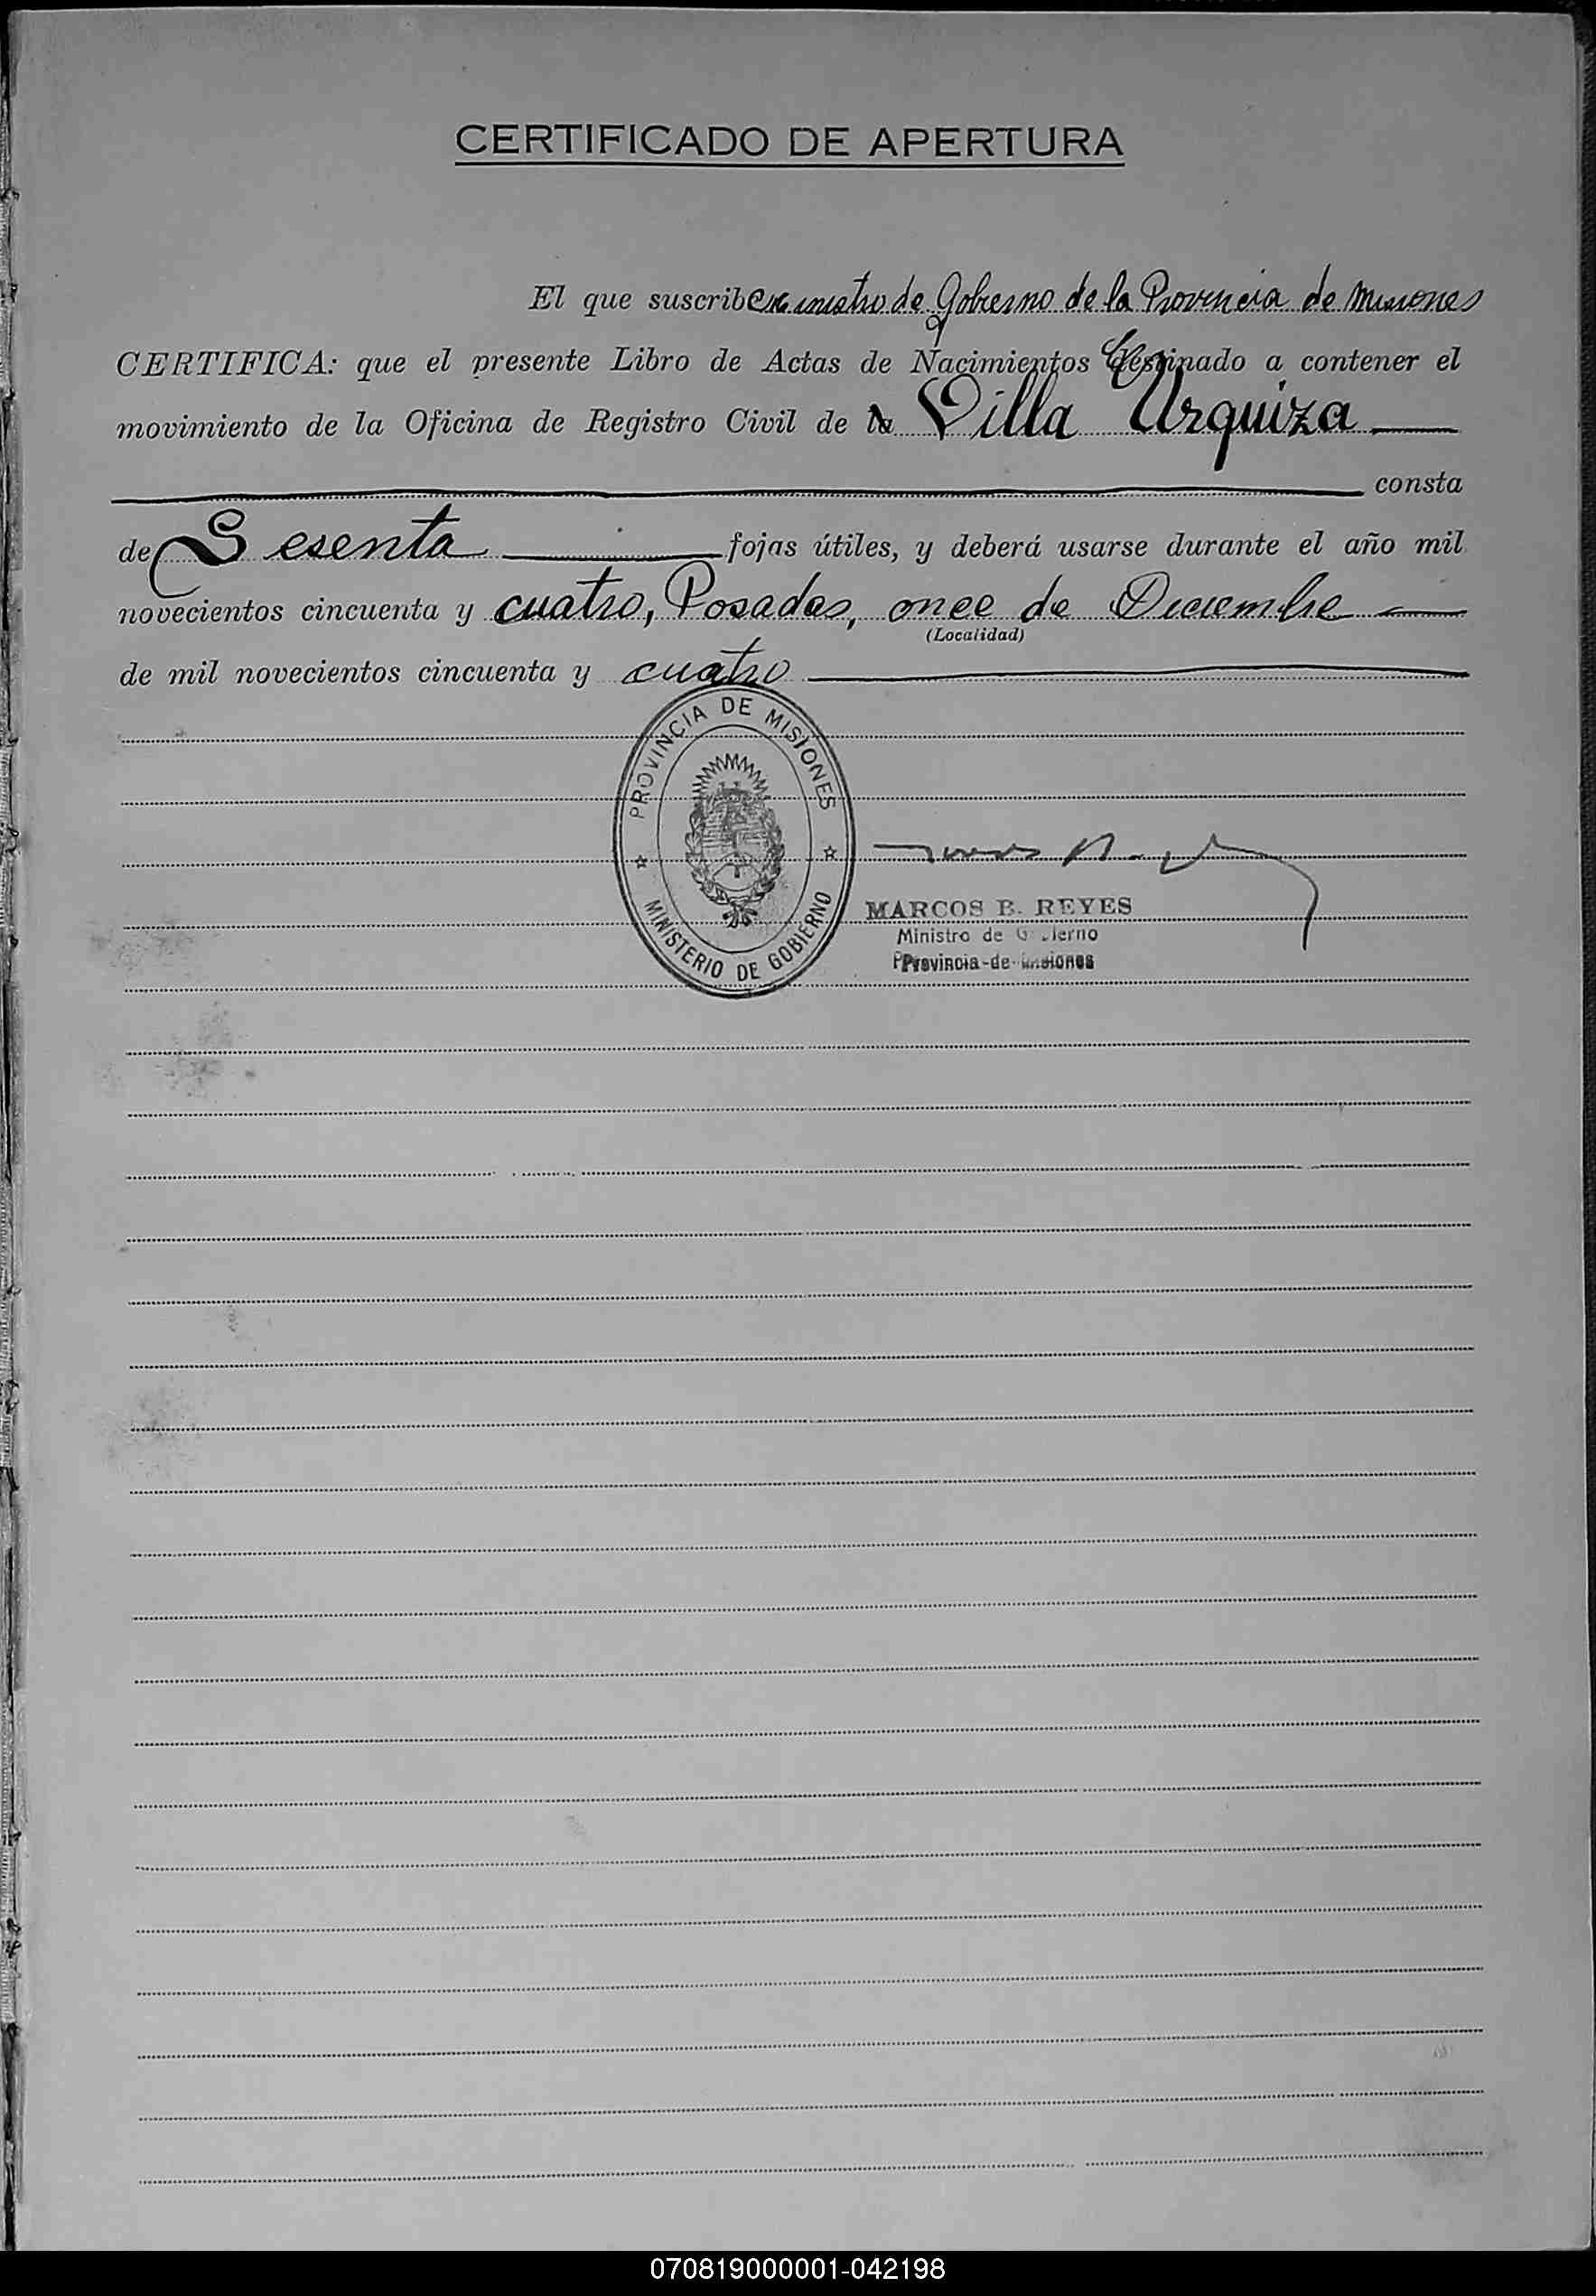 CERTIFICADO DE APERTURA
El que suscribe Ministro de Gobierno de la Provincia de Misiones
CERTIFICA: que el presente Libro de Actas de Nacimientos destinado a contener el
movimiento de la Oficina de Registro Civil de la Villa Urquiza
consta
de Sesenta fojas útiles, y deberá usarse durante el año mil
novecientos cincuenta y cuatro, Posadas, once de Diciembre
(Localidad)
de mil novecientos cincuenta y cuatro
PROVINCIA DE MISIONES
MINISTERIO DE GOBIERNO
MARCOS B. REYES
Ministro de Gobierno
Provincia de Misiones
070819000001-042198